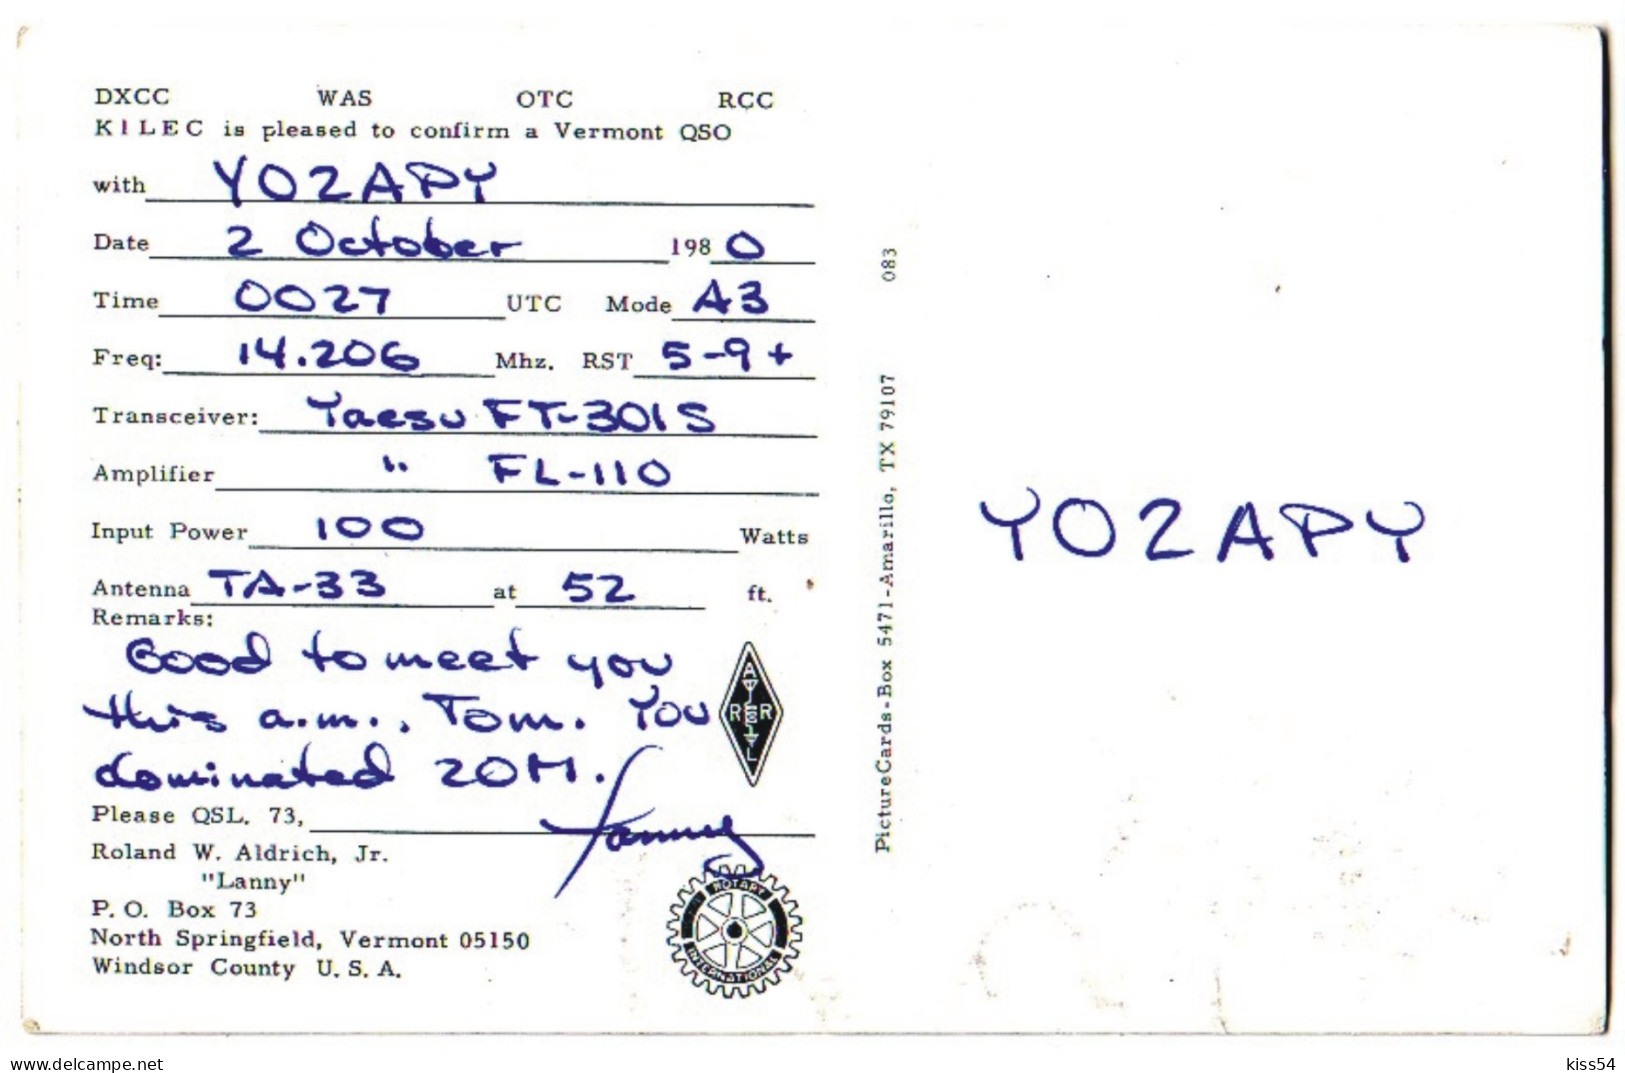 DXCC WAS OTC RCC
K1LEC is pleased to confirm a Vermont QSO
with YO2APY
Date 2 October 1980
Time 0027 UTC Mode A3
Freq: 14.206 Mhz. RST 5-9+
Transceiver: Yaesu FT-301S
Amplifier " FL-110
Input Power 100 Watts
Antenna TA-33 at 52 ft.
Remarks:
Good to meet you
this a.m., Tom. You
dominated 20M.
ARRL
Please QSL. 73, Lanny
Roland W. Aldrich, Jr.
"Lanny"
P. O. Box 73
North Springfield, Vermont 05150
Windsor County U. S. A.
ROTARY
INTERNATIONAL
PictureCards-Box 5471-Amarillo, TX 79107 083
YO2APY
delcampe.net
kiss54